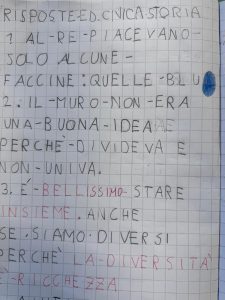 RISPOSTE ED. CIVICA STORIA
1 AL-RE-PIACEVANO-
SOLO ALCUNE-
FACCINE: QUELLE-BLU
2. IL-MURO-NON-ERA
UNA-BUONA-IDEA
PERCHÈ-DIVIDEVA E
NON-UNIVA.
3. É-BELLISSIMO-STARE
INSIEME. ANCHE
SE. SIAMO. DIVERSI
PERCHÈ LA-DIVERSITÀ
È-RICCHEZZA